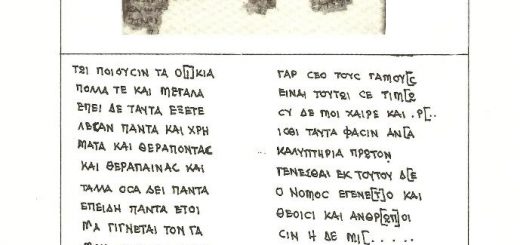 ΤΩΙ ΠΟΙΟΥϹΙΝ ΤΑ Ο[Ι]ΚΙΑ
ΠΟΛΛΑ ΤΕ ΚΑΙ ΜΕΓΑΛΑ
ΕΠΕΙ ΔΕ ΤΑΥΤΑ ΕΞΕΤΕ
ΛΕϹΑΝ ΠΑΝΤΑ ΚΑΙ ΧΡΗ
ΜΑΤΑ ΚΑΙ ΘΕΡΑΠΟΝΤΑϹ
ΚΑΙ ΘΕΡΑΠΑΙΝΑϹ ΚΑΙ
ΤΑΛΛΑ ΟϹΑ ΔΕΙ ΠΑΝΤΑ
ΕΠΕΙΔΗ ΠΑΝΤΑ ΕΤΟΙ
ΜΑ ΓΙΓΝΕΤΑΙ ΤΟΝ ΓΑ
ΓΑΡ ϹΕΟ ΤΟΥϹ ΓΑΜΟΥ[Ϲ
ΕΙΝΑΙ ΤΟΥΤΩΙ ϹΕ ΤΙΜ[Ω
ϹΥ ΔΕ ΜΟΙ ΧΑΙΡΕ ΚΑΙ .Ρ[..
ΙϹΘΙ ΤΑΥΤΑ ΦΑϹΙΝ ΑΝ[Α
ΚΑΛΥΠΤΗΡΙΑ ΠΡΩΤΟΝ
ΓΕΝΕϹΘΑΙ ΕΚ ΤΟΥΤΟΥ Δ[Ε
Ο ΝΟΜΟϹ ΕΓΕΝΕ[Τ]Ο ΚΑΙ
ΘΕΟΙϹΙ ΚΑΙ ΑΝΘΡ[ΩΠ]ΟΙ
ϹΙΝ Η ΔΕ ΜΙ[.....